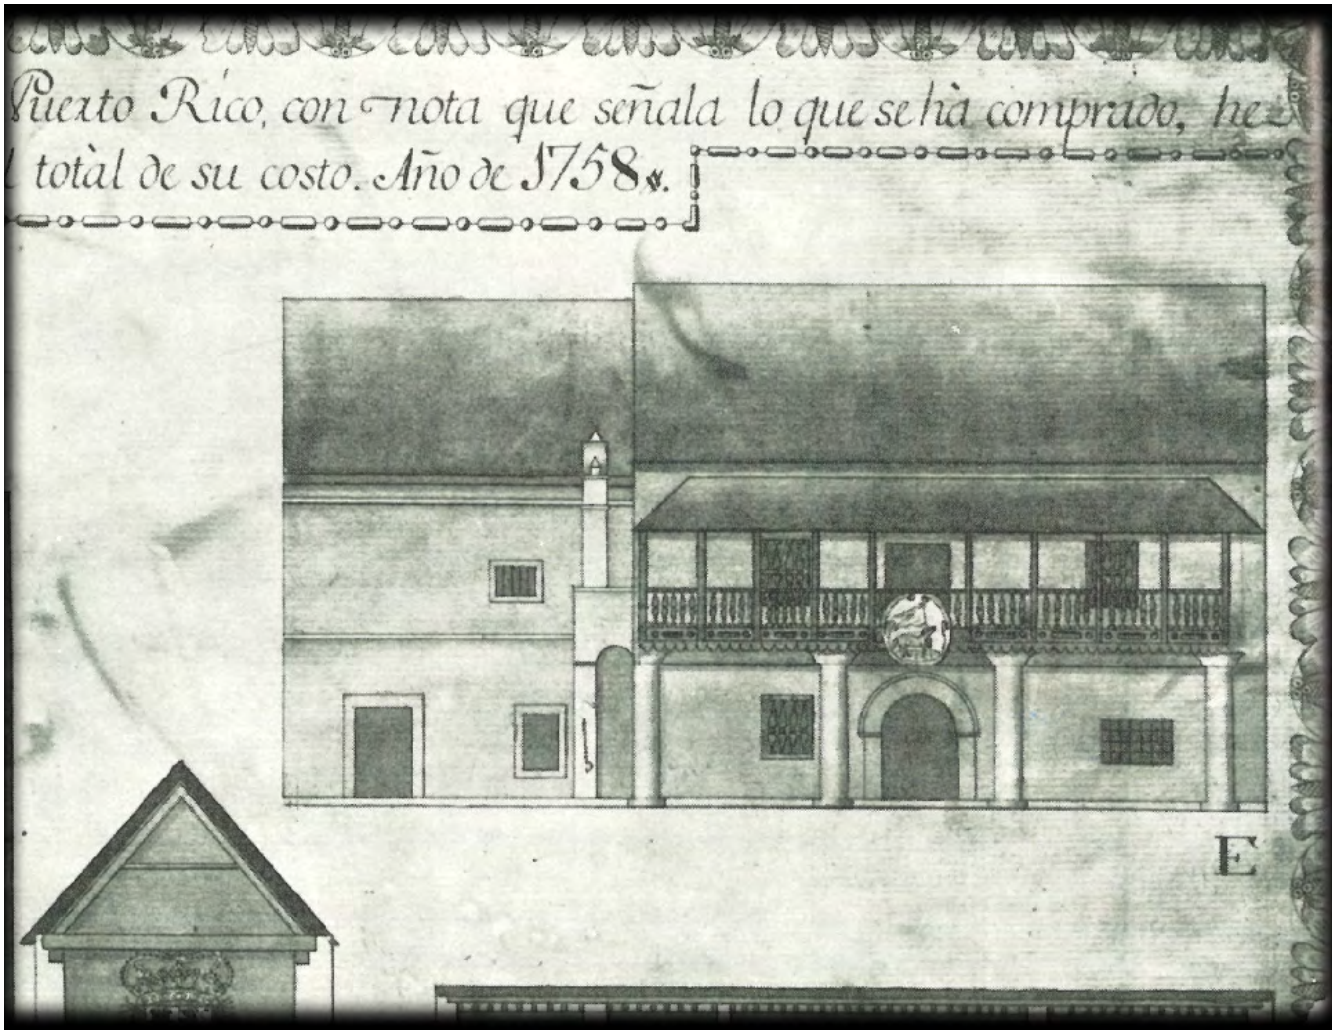 Puerto Rico, con nota que señala lo que se hà comprado, he
l totàl de su costo. Año de 1758
E